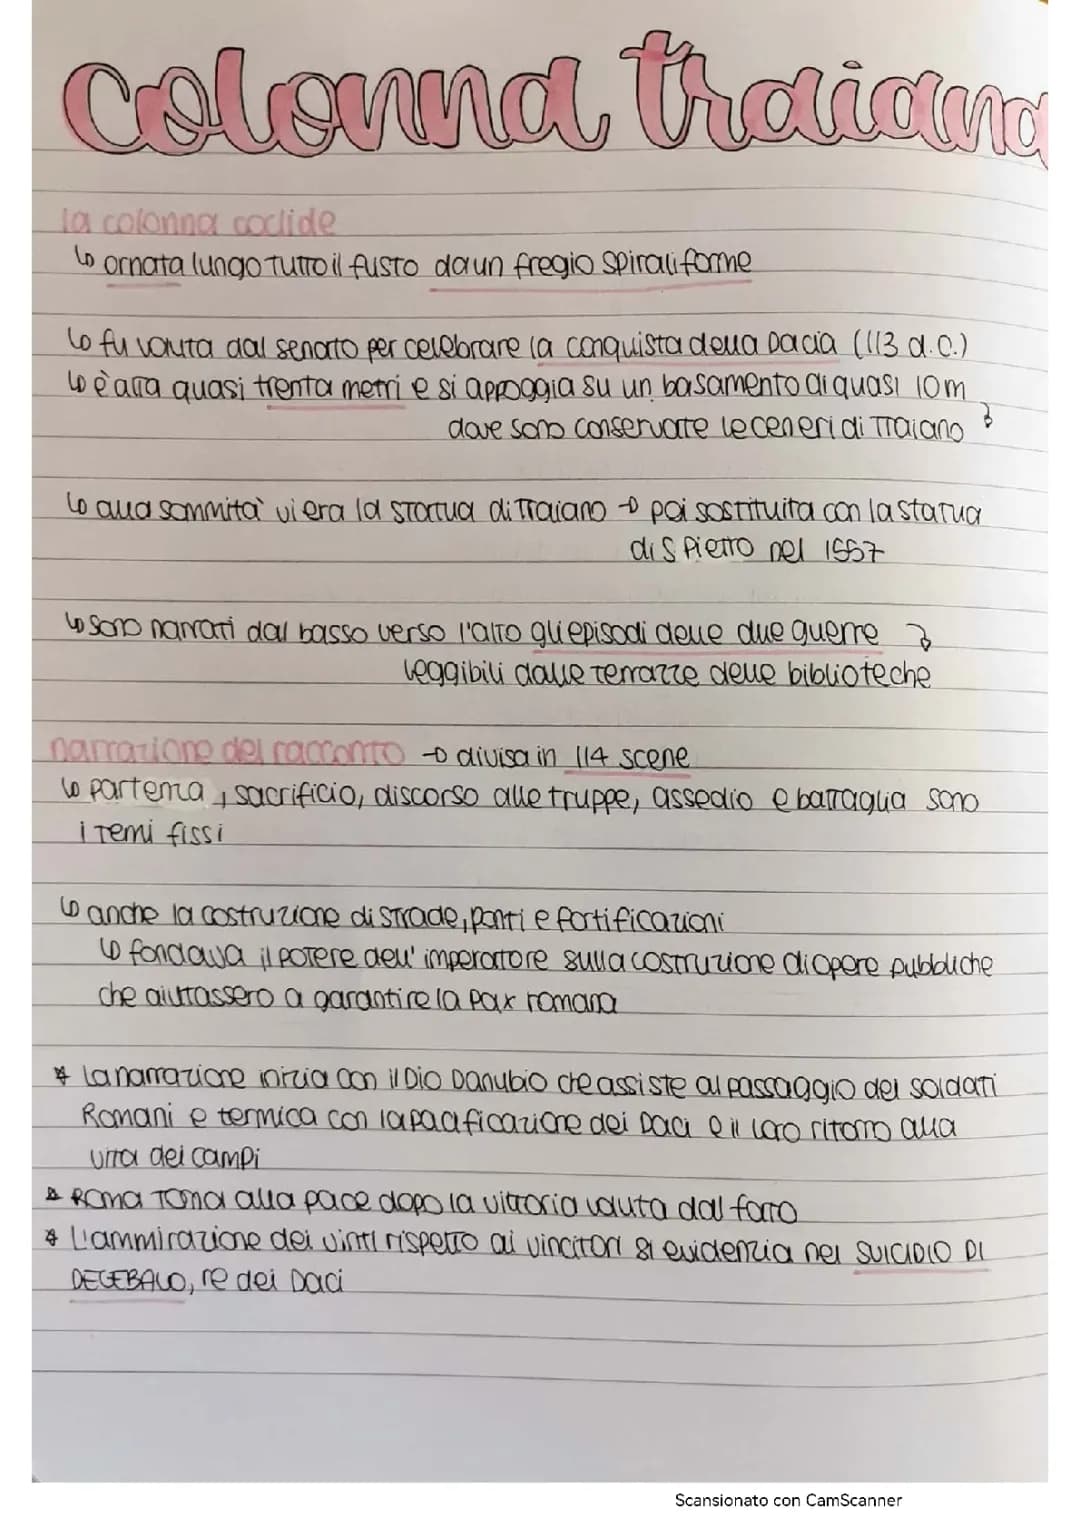 colonna traiana
la colonna coclide
↳ ornata lungo TUTTO il fusto da un fregio spiraliforme
↳ fu voluta dal senato per celebrare la conquista della Dacia (113 d.C.)
↳ è alta quasi trenta metri e si appoggia su un basamento di quasi 10m
dove sono conservate le ceneri di Traiano
↳ alla sommità vi era la statua di Traiano → poi sostituita con la statua
di S Pietro nel 1557
↳ sono narrati dal basso verso l'alto gli episodi delle due guerre
leggibili dalle terrazze delle biblioteche
narrazione del racconto → divisa in 114 scene
↳ partenza, sacrificio, discorso alle truppe, assedio e battaglia sono
i temi fissi
↳ anche la costruzione di strade, ponti e fortificazioni
↳ fondava il potere dell'imperatore sulla costruzione di opere pubbliche
che aiutassero a garantire la Pax romana
* La narrazione inizia con il Dio Danubio che assiste al passaggio dei soldati
Romani e termica con la pacificazione dei Daci e il loro ritorno alla
vita dei campi
* Roma torna alla pace dopo la vittoria voluta dal fato
* L'ammirazione dei vinti rispetto ai vincitori si evidenzia nel SUICIDIO DI
DECEBALO, re dei Daci
Scansionato con CamScanner